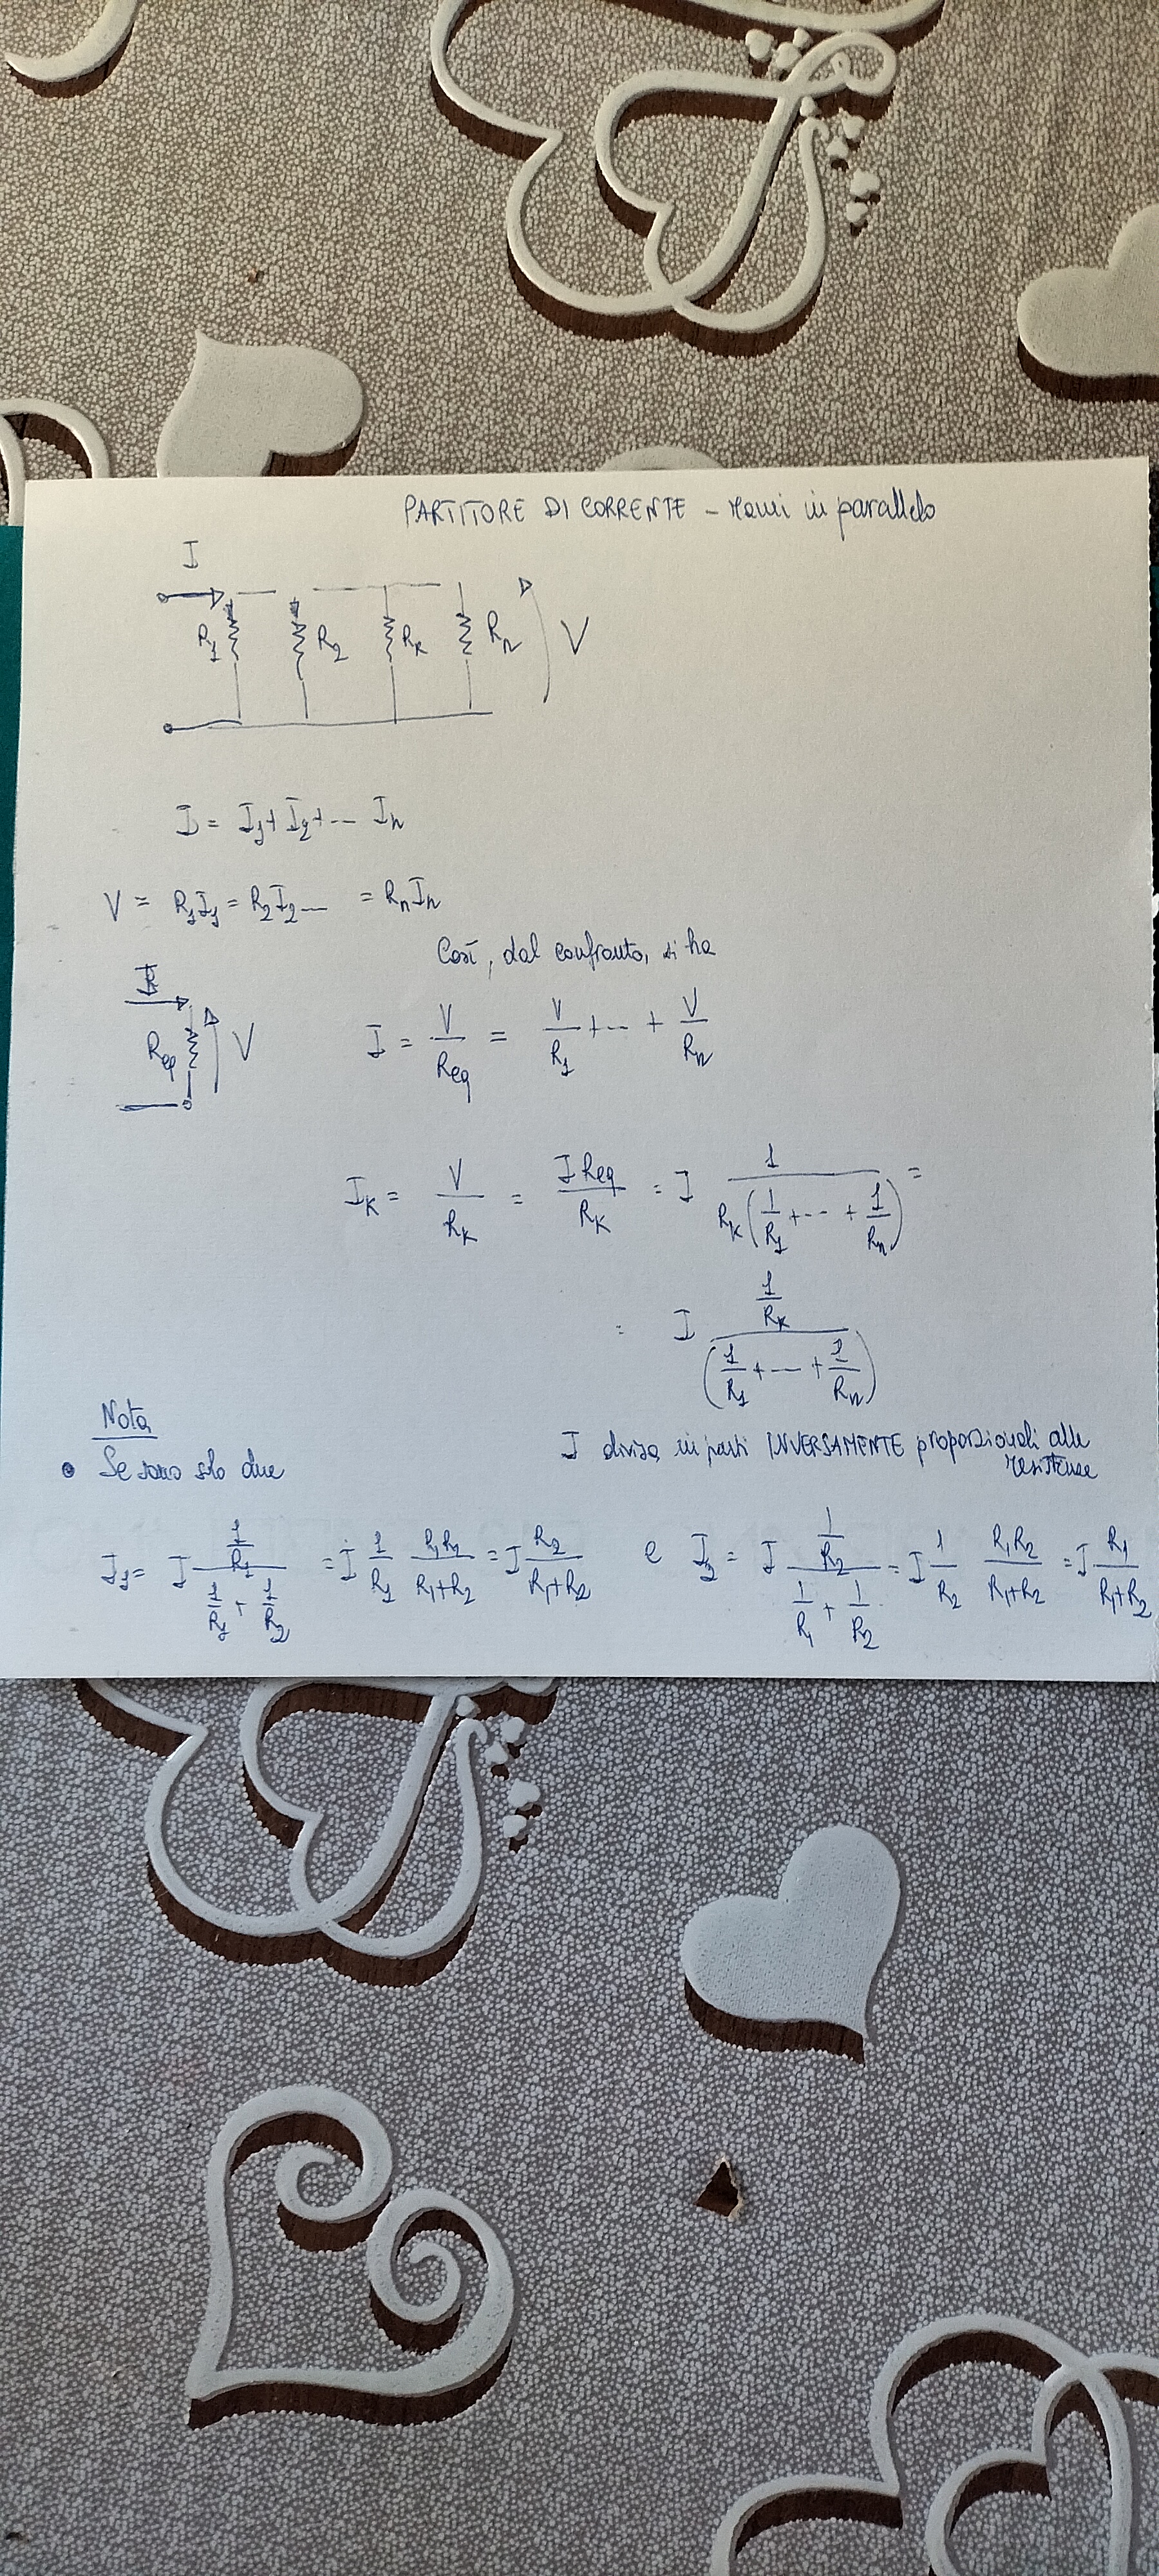 PARTITORE DI CORRENTE - rami in parallelo
I
R1 R2 RK Rn V
I = I1 + I2 + --- In
V = R1I1 = R2I2 --- = RnIn
Così, dal confronto, si ha
I
Req V
I = V/Req = V/R1 + -- + V/Rn
IK = V/RK = I Req/RK = I 1/(RK(1/R1 + --- + 1/Rn)) =
= I (1/RK)/(1/R1 + --- + 1/Rn)
Nota
I divisa in parti INVERSAMENTE proporzionali alle resistenze
• Se sono solo due
I1 = I (1/R1)/(1/R1 + 1/R2) = I 1/R1 R1R2/(R1+R2) = I R2/(R1+R2) e I2 = I (1/R2)/(1/R1 + 1/R2) = I 1/R2 R1R2/(R1+R2) = I R1/(R1+R2)